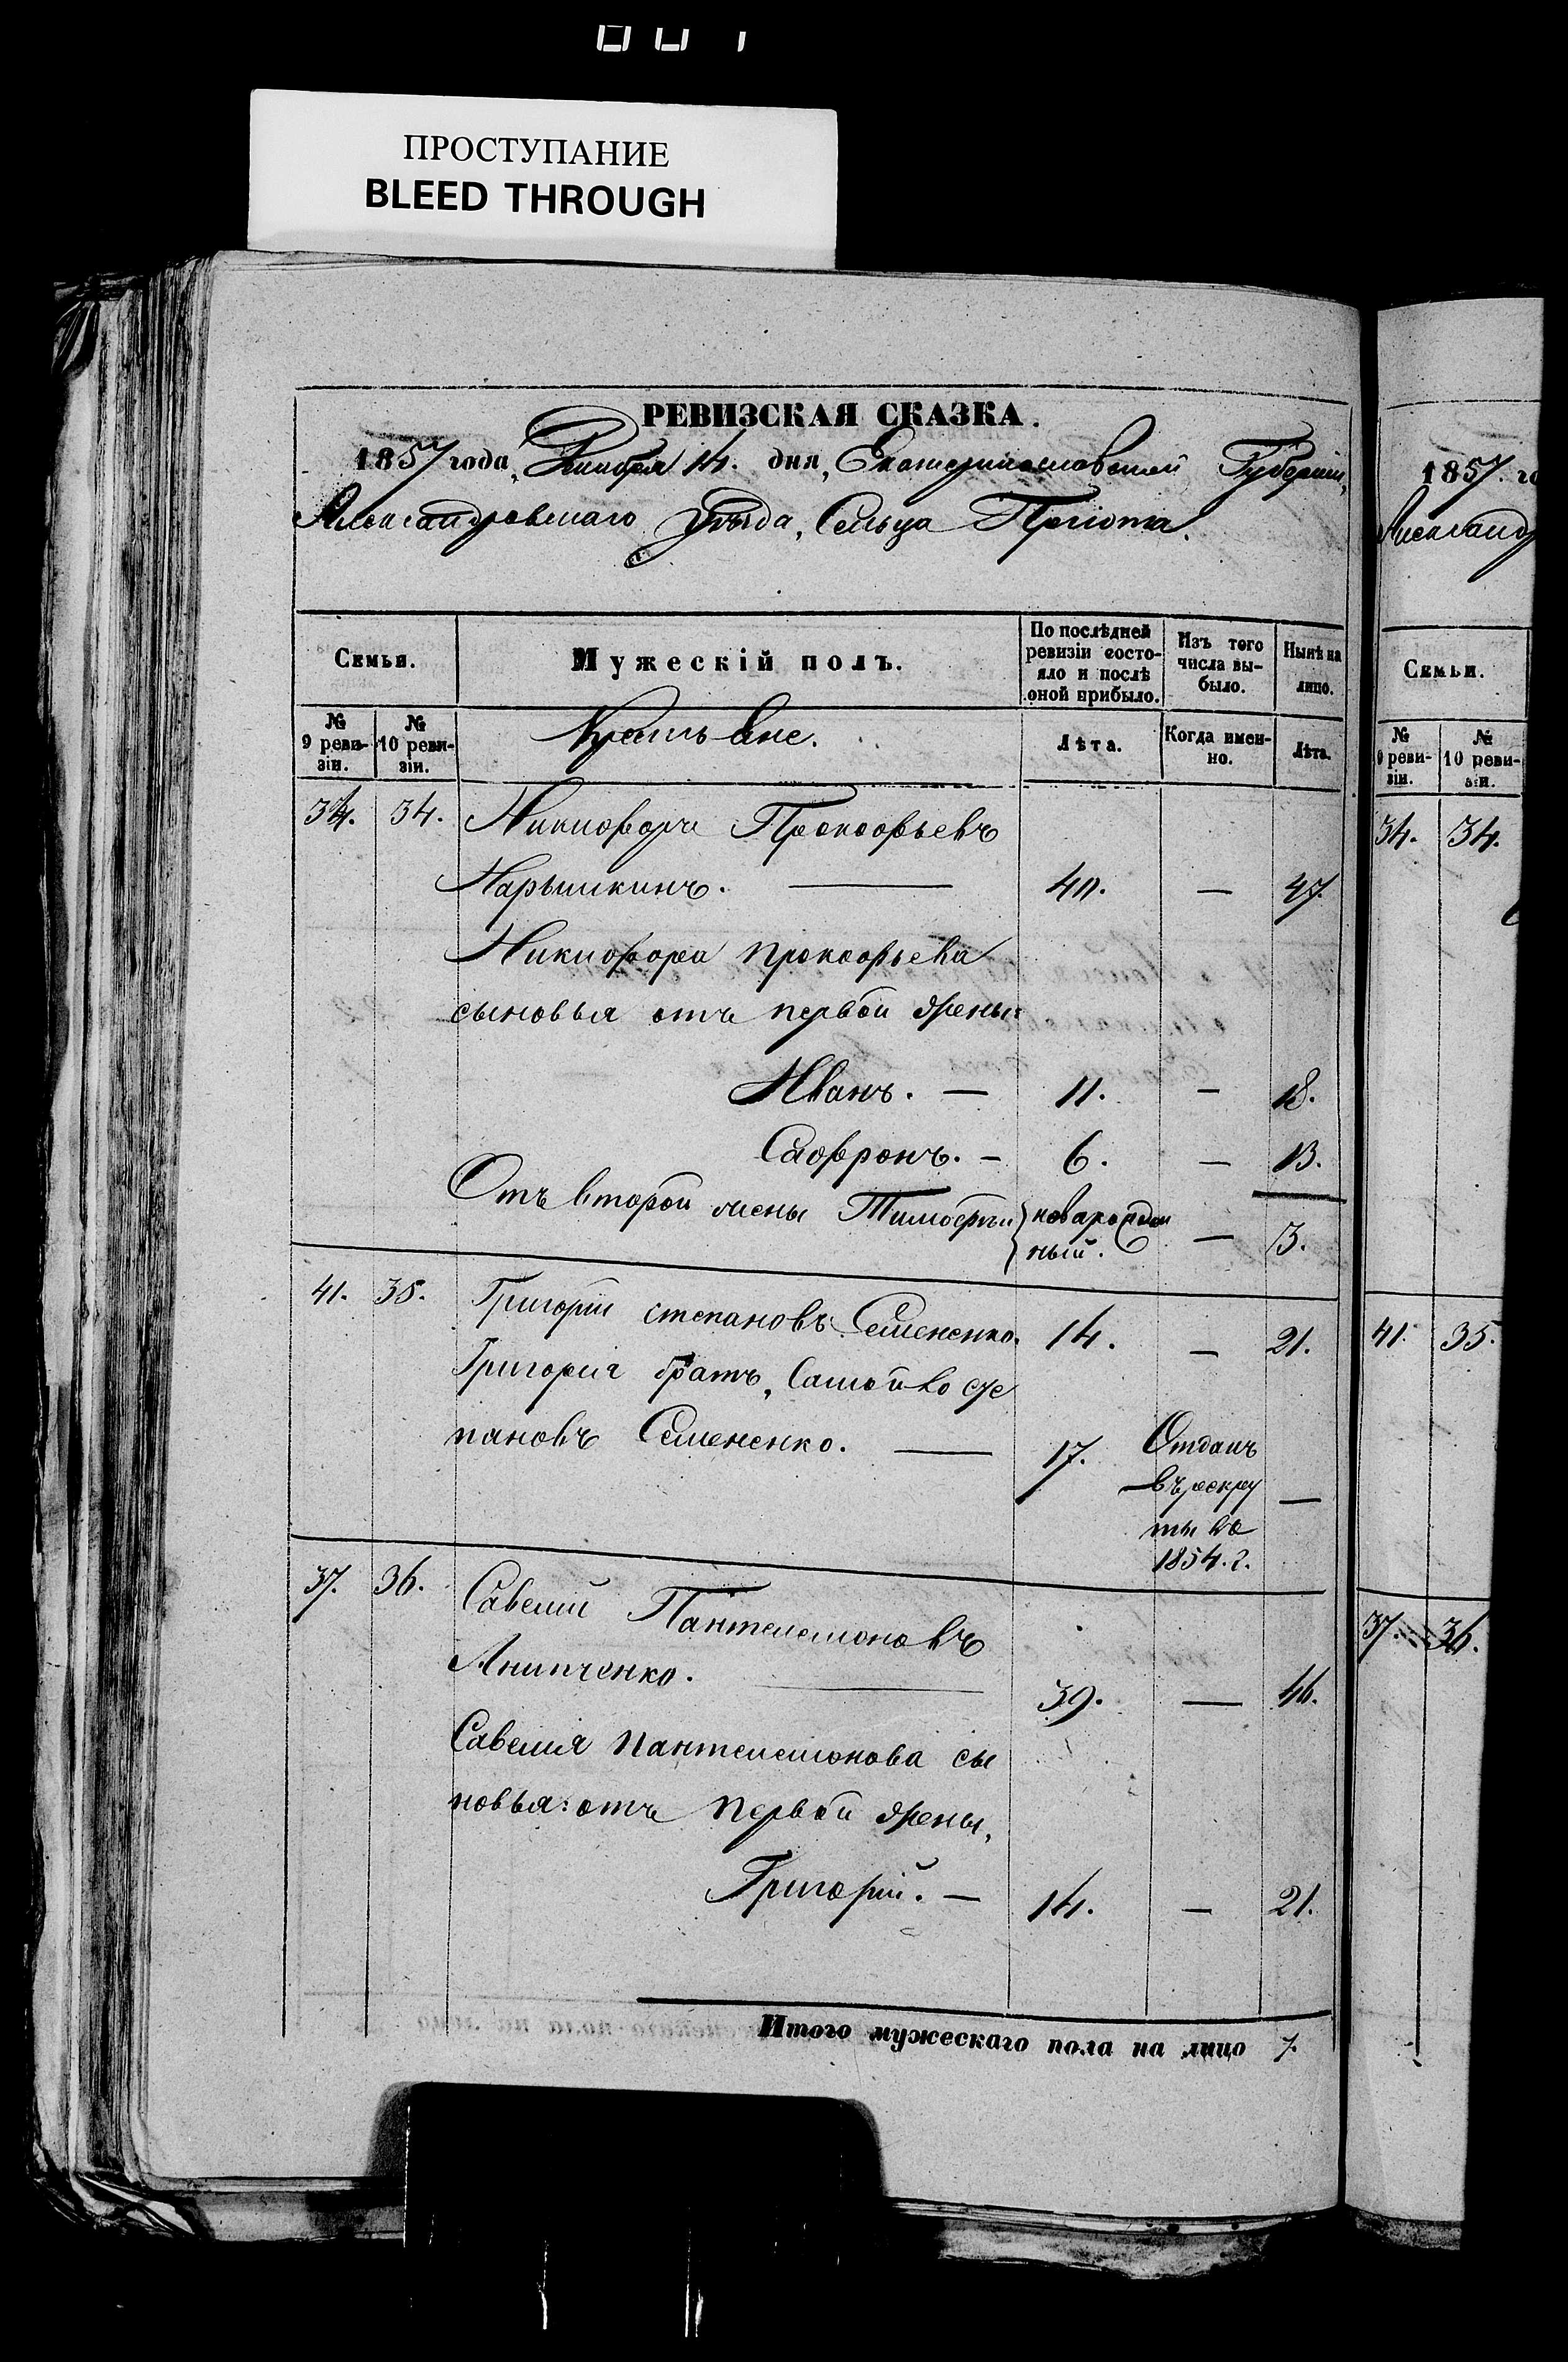 ПРОСТУПАНИЕ
BLEED THROUGH
РЕВИЗСКАЯ СКАЗКА.
1857 года, 14. дня, Екатеринославской Губерніи,
Александровскаго Уѣзда, Сельца
Семьи. Мужескій полъ. По послѣдней ревизіи состояло и послѣ оной прибыло. Изъ того числа выбыло. Нынѣ на лицо.
№ 9 ревизіи. № 10 ревизіи. Крестьяне. Лѣта. Когда именно. Лѣта.
34. 34. Никифоръ Прокофьевъ
Нарышкинъ. — 40. — 47.
Никифора Прокофьева
сыновья отъ первой жены:
Иванъ. — 11. — 18.
Софронъ. — 6. — 13.
Отъ второй жены Тимофей } новарожден
ный. — 3.
41. 35. Григорій степановъ Семененко. 14. — 21.
Григорія братъ, Самойло сте
пановъ Семененко. — 17. Отданъ
въ рекру
ты въ —
1854. г.
37. 36. Савелій Пантелемоновъ
Анипченко. — 39. — 46.
Савелія Пантелемонова сы
новья: отъ первой жены,
Григорій. — 14. — 21.
Итого мужескаго пола на лицо 7.
1857. го
Александ
Семьи.
№ 9 ревизіи. № 10 ревизіи.
34. 34.
41. 35.
37. 36.